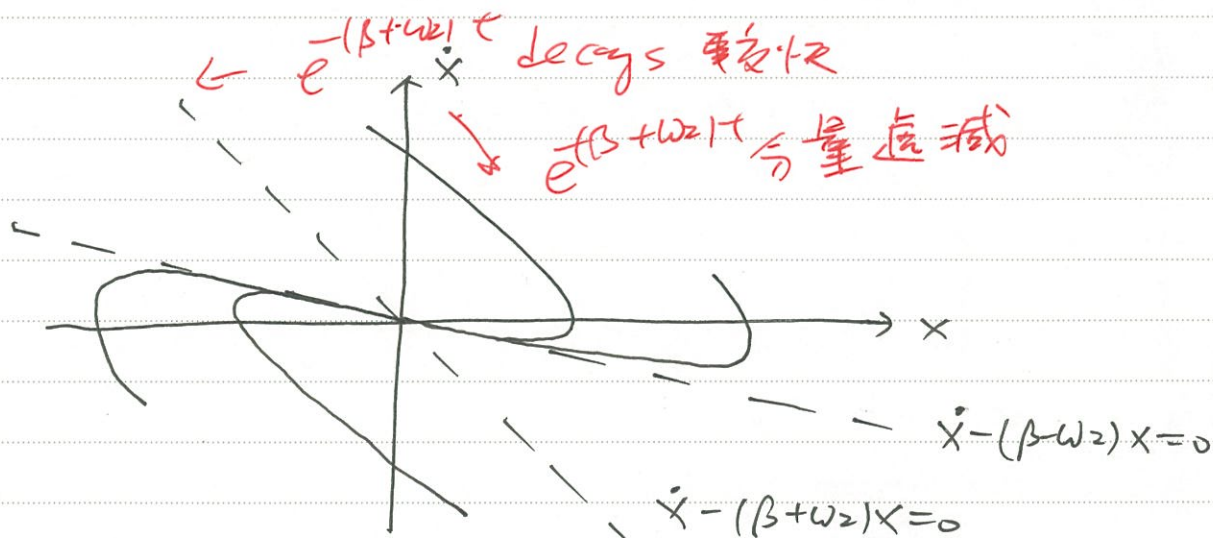 ← e^{-(β+ω2)t} decays 較快
ẋ
e^{-(β+ω2)t} 分量遞減
x
ẋ-(β-ω2)x=0
ẋ-(β+ω2)x=0